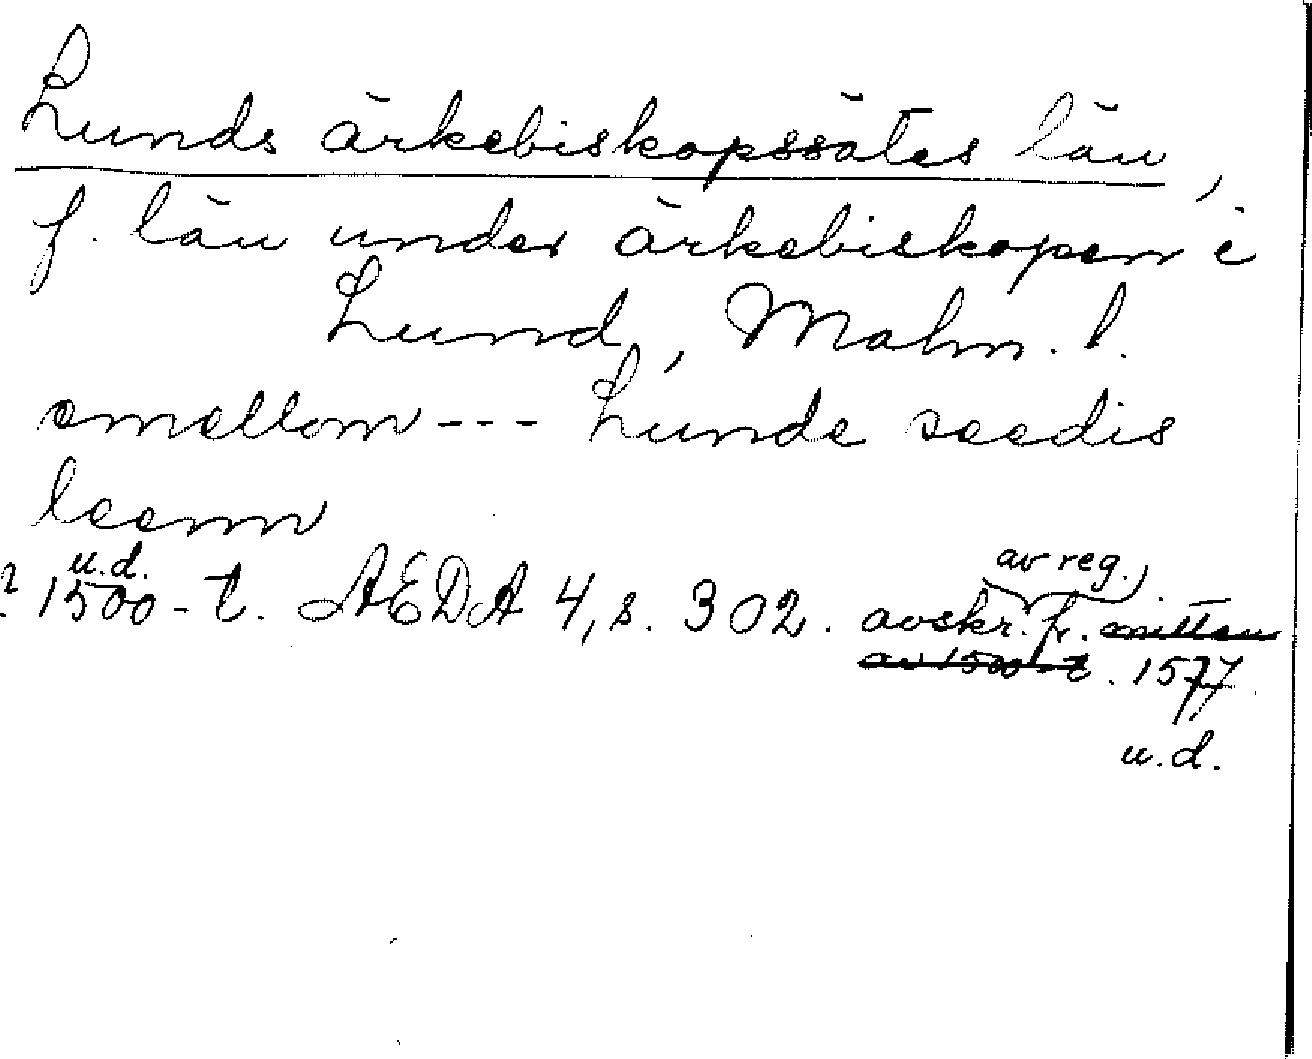 Lunds ärkebiskopssätes län,
f. län under ärkebiskopen i
Lund, Malm. l.
emellom --- Lunde seedis
leenn
u.d.
? 1500-t. AEDA 4, s. 302. avskr. av reg. fr. mitten
av 1500-t. 1577
u.d.